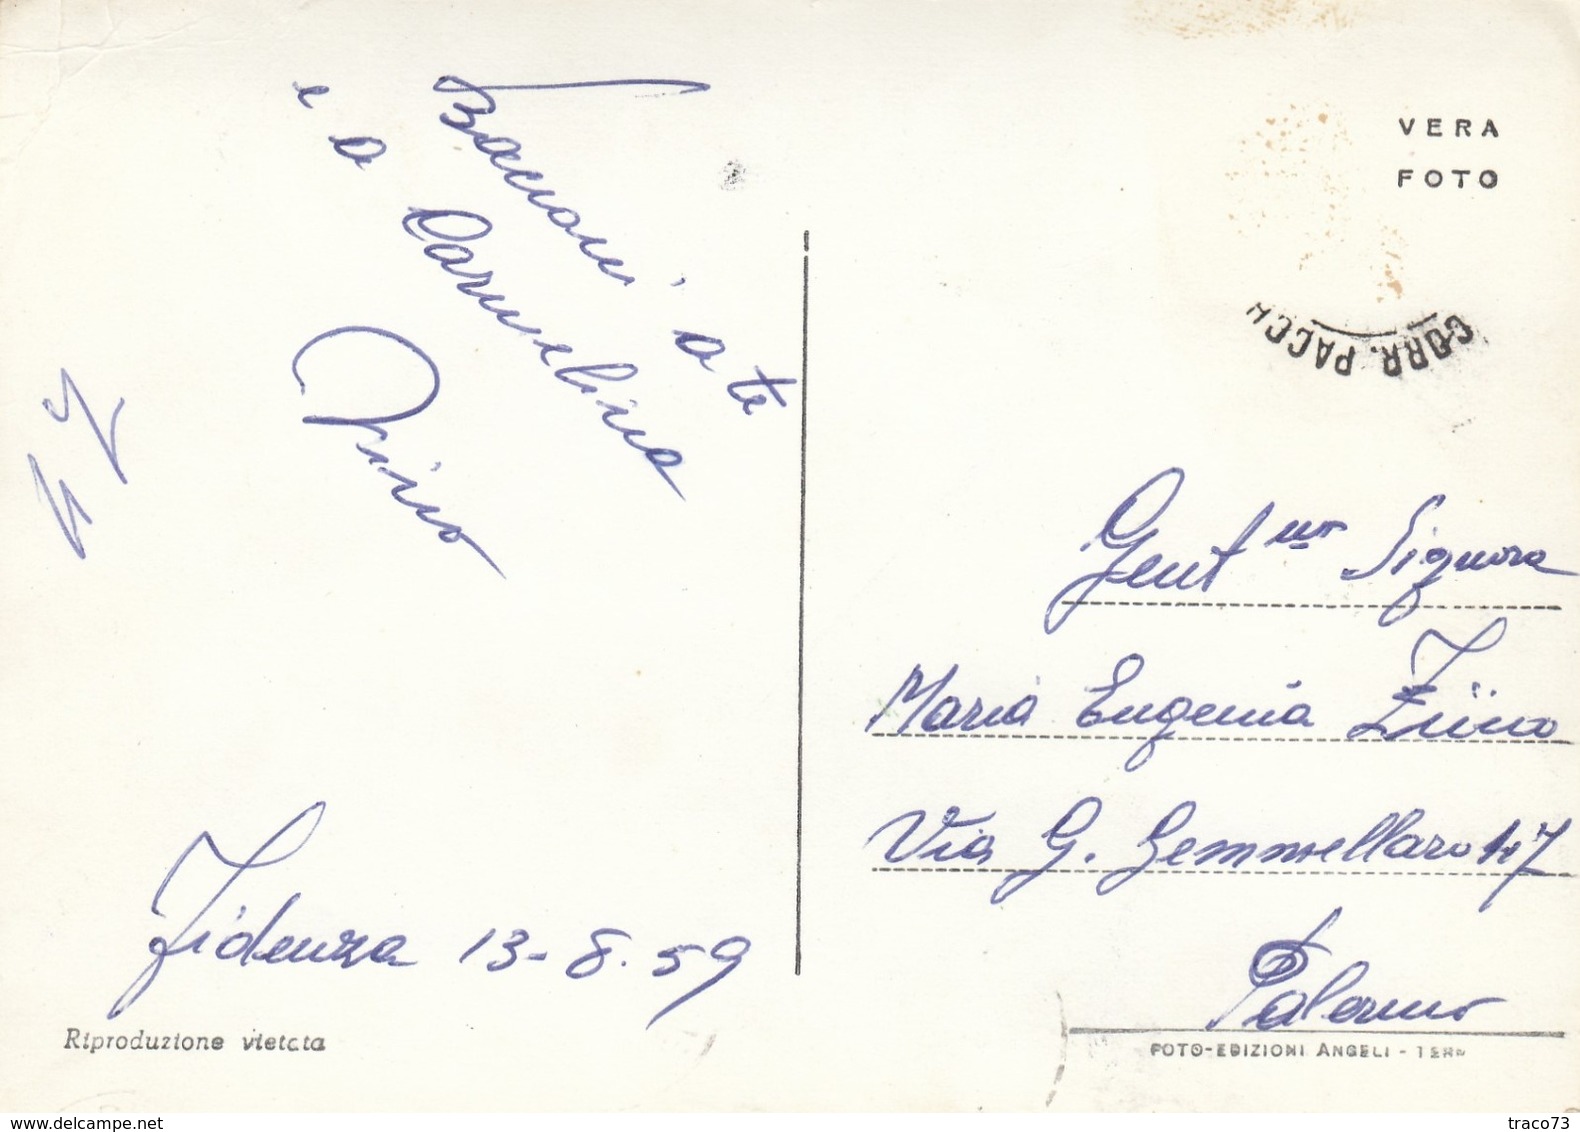 Bacioni a te
e a Carmelina
Nino
Fidenza 13-8.59
Riproduzione vietata
VERA
FOTO
CORR. PACCH
Gent.ma Signora
Maria Eugenia Ziino
Via G. Gemmellaro 47
Palermo
FOTO-EDIZIONI ANGELI - TERN
www.delcampe.net
traco73